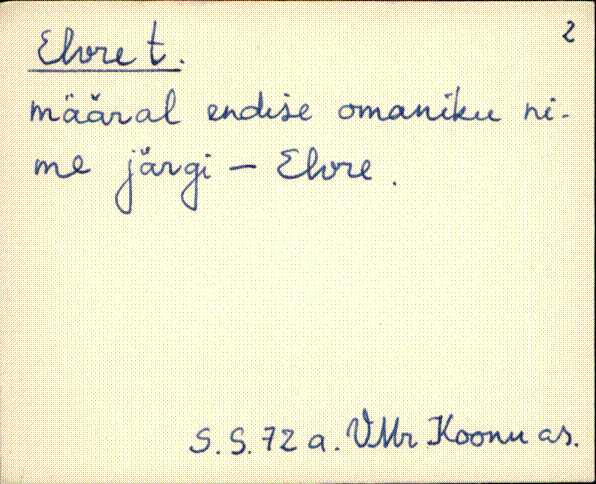 2
Elvre t.
määral endise omaniku ni-
me järgi – Elvre.
S. S. 72 a. VMr Koonu as.